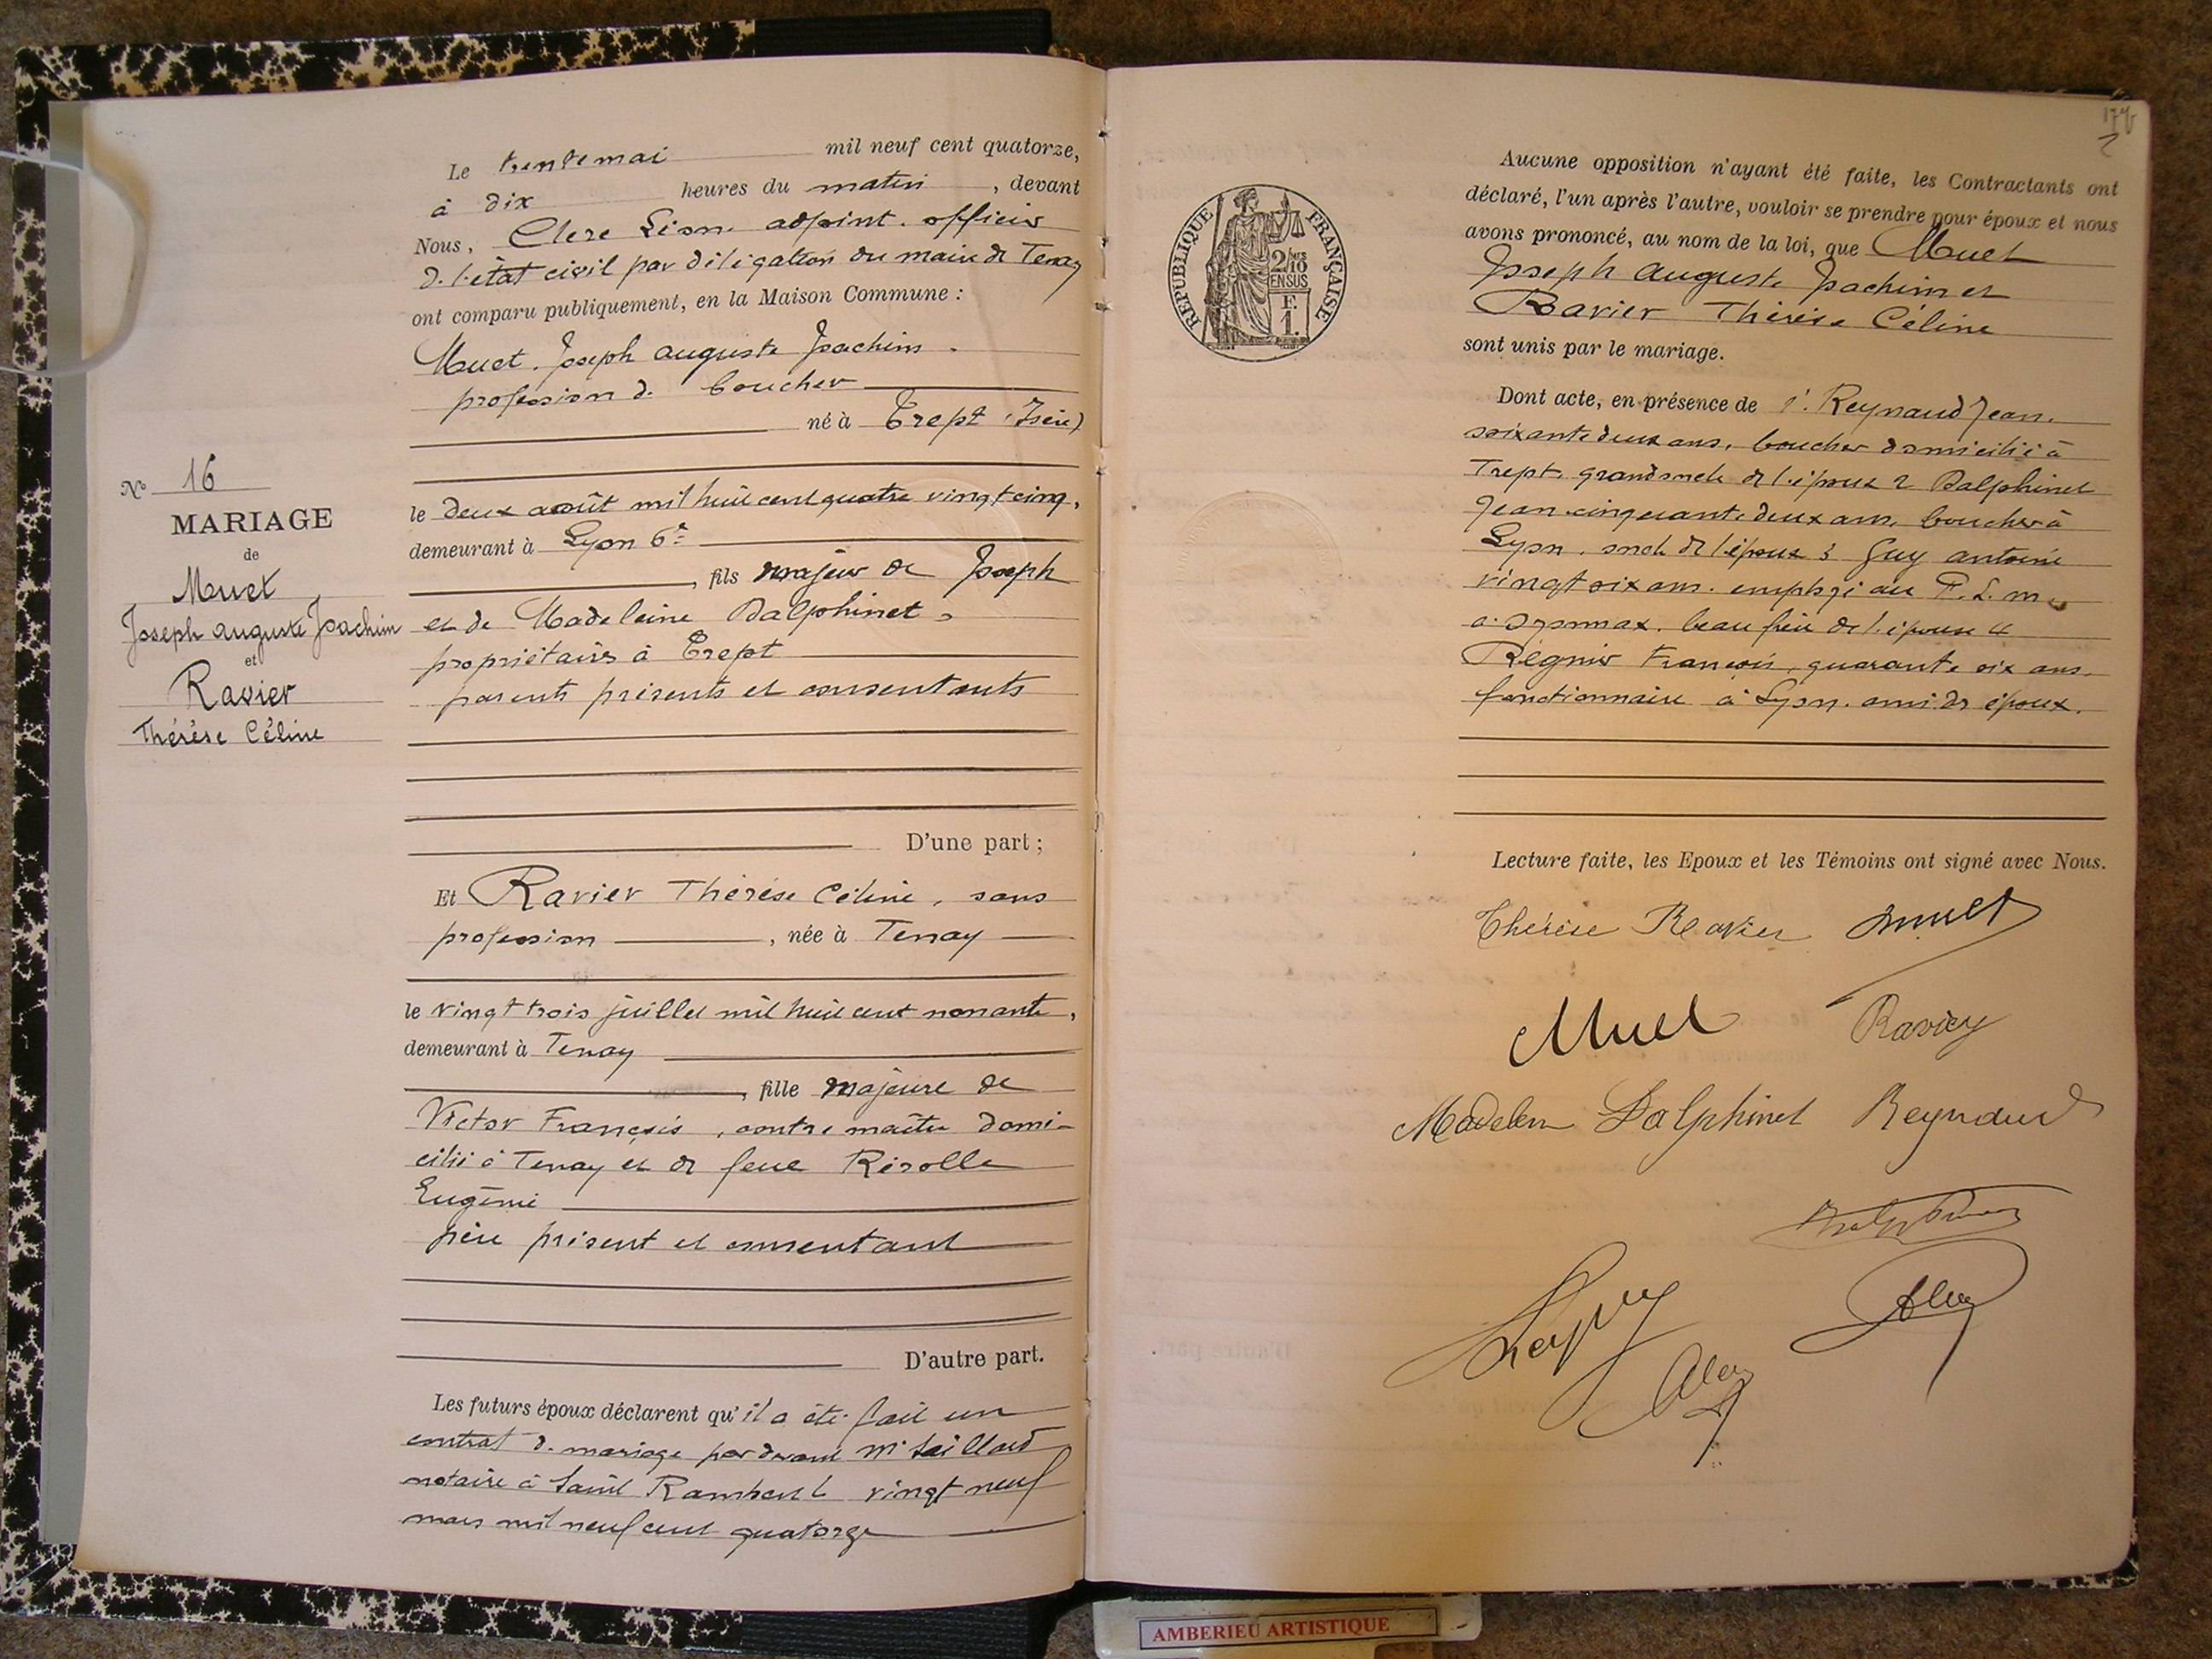 Le trente mai mil neuf cent quatorze,
à dix heures du matin, devant
Nous, Clerc Léon adjoint officier
de l'état civil par délégation du maire de Tenay
ont comparu publiquement, en la Maison Commune :
Muet Joseph Auguste Joachim
profession de boucher
né à Trept (Isère)
le deux août mil huit cent quatre vingt cinq,
demeurant à Lyon 6e
, fils majeur de Joseph
et de Madeleine Dalphinet
propriétaires à Trept
parents présents et consentants
D'une part ;
Et Ravier Thérèse Céline, sans
profession, née à Tenay
le vingt trois juillet mil huit cent nonante,
demeurant à Tenay
, fille majeure de
Victor François, contre maître domi-
cilié à Tenay et de feue Résolle
Eugénie
père présent et consentant
D'autre part.
Les futurs époux déclarent qu'il a été fait un
contrat de mariage par devant Me Saillard
notaire à Saint Rambert vingt neuf
mars mil neuf cent quatorze
No 16
MARIAGE
de
Muet
Joseph Auguste Joachim
et
Ravier
Thérèse Céline
2
RÉPUBLIQUE FRANÇAISE
2/10
EN SUS
F.
1.
Aucune opposition n'ayant été faite, les Contractants ont
déclaré, l'un après l'autre, vouloir se prendre pour époux et nous
avons prononcé, au nom de la loi, que Muet
Joseph Auguste Joachim et
Ravier Thérèse Céline
sont unis par le mariage.
Dont acte, en présence de 1. Reynaud Jean
soixante deux ans, boucher domicilié à
Trept, grand oncle de l'époux 2 Dalphinet
Jean cinquante deux ans, boucher à
Lyon, oncle de l'époux 3 Guy Antoine
vingt six ans, employé au P. L. M.
à Oyonnax, beau frère de l'épouse 4
Régnier François, quarante six ans
fonctionnaire à Lyon, ami des époux.
Lecture faite, les Epoux et les Témoins ont signé avec Nous.
Thérèse Ravier Muet
Muet Ravier
Dalphinet Reynaud
AMBERIEU ARTISTIQUE